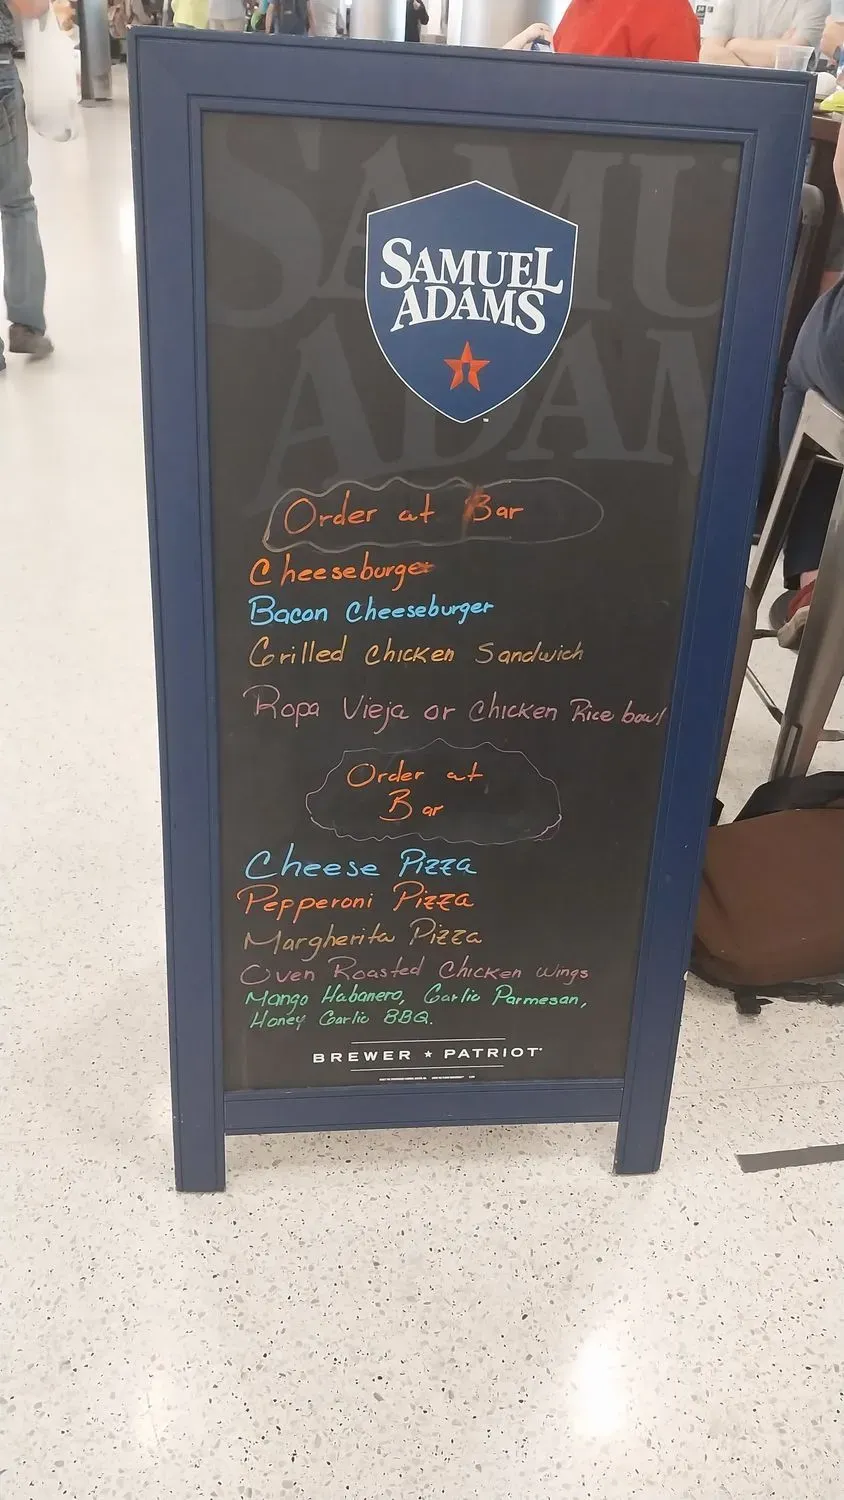 SAMUEL
ADAMS
Order at Bar
Cheeseburger
Bacon Cheeseburger
Grilled Chicken Sandwich
Ropa Vieja or Chicken Rice bowl
Order at
Bar
Cheese Pizza
Pepperoni Pizza
Margherita Pizza
Oven Roasted Chicken wings
Mango Habanero, Garlic Parmesan,
Honey Garlic BBQ.
BREWER ★ PATRIOT